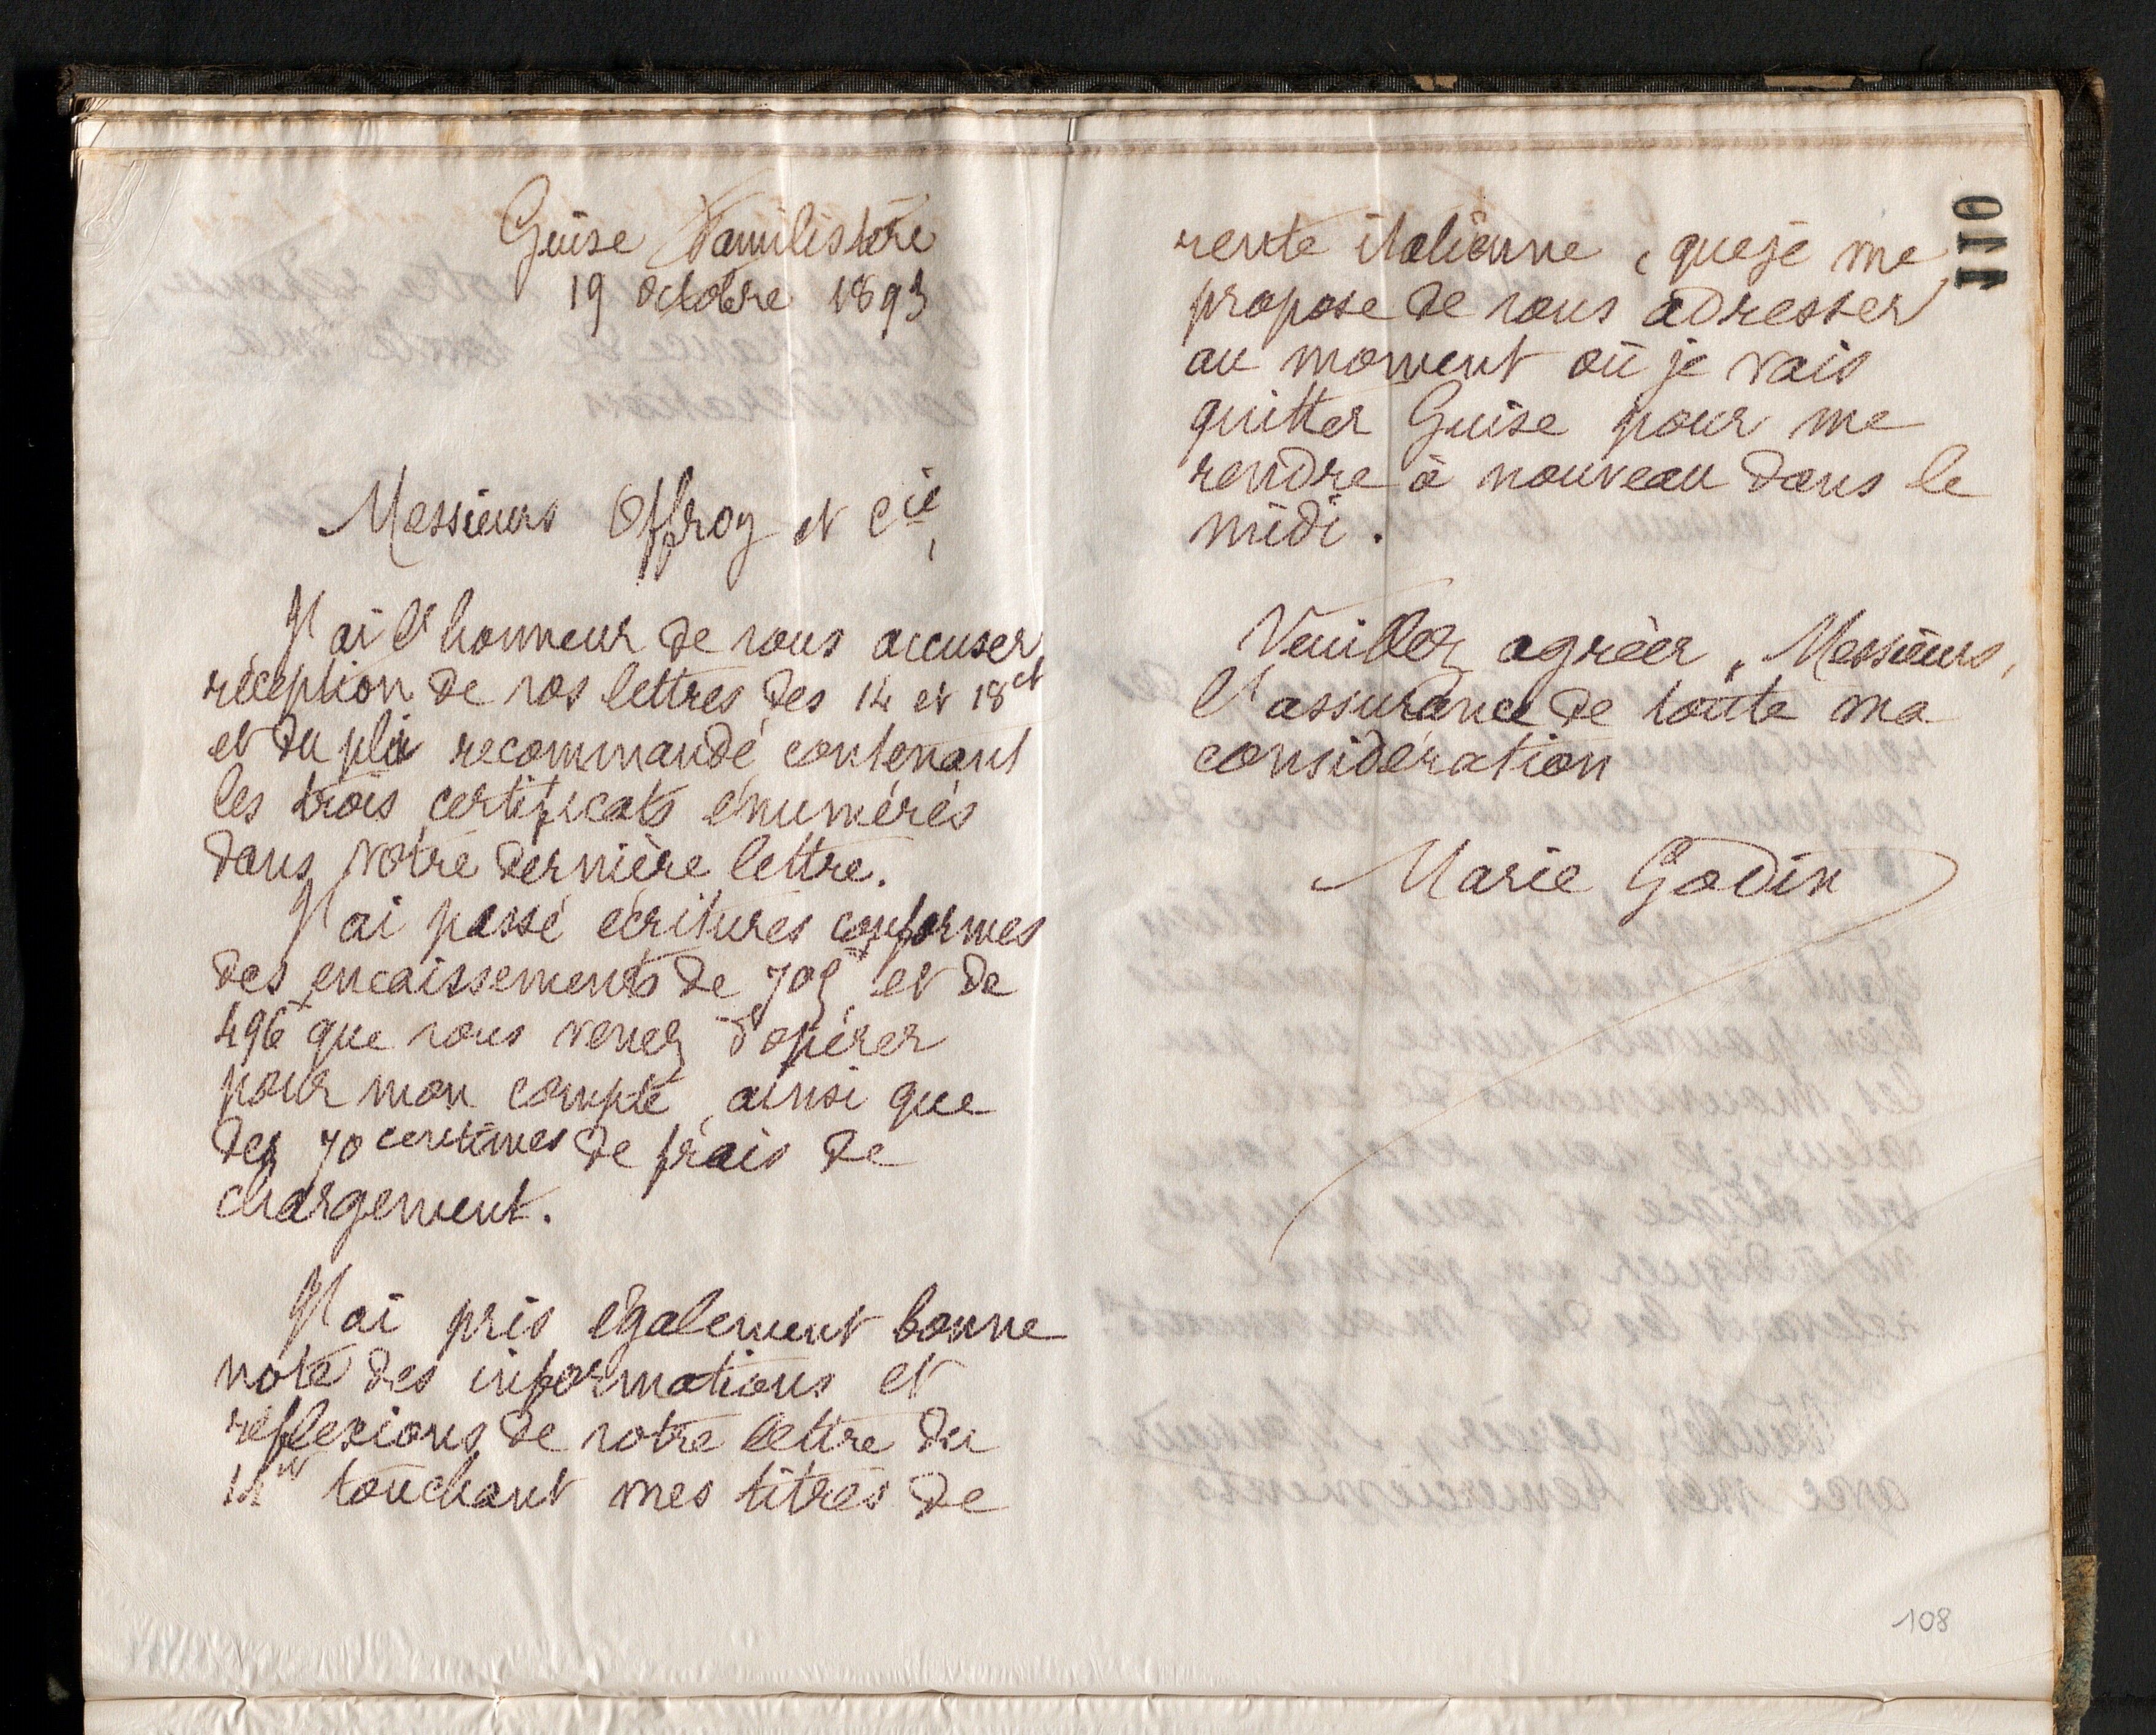 Guise Familistère
19 octobre 1893
Messieurs Offroy et Cie,
J'ai l'honneur de vous accuser
réception de vos lettres des 14 et 18 ct
et du pli recommandé contenant
les trois certificats énumérés
dans votre dernière lettre.
J'ai passé écritures conformes
des encaissements de et de
496 que vous venez d'opérer
pour mon compte, ainsi que
des 70 centimes de frais de
chargement.
J'ai pris également bonne
note des informations et
réflexions de votre lettre du
14 ct touchant mes titres de
110
rente italienne, que je me
propose de vous adresser
au moment où je vais
quitter Guise pour me
rendre à nouveau dans le
midi.
Veuillez agréer, Messieurs,
l'assurance de toute ma
considération
Marie Godin
108